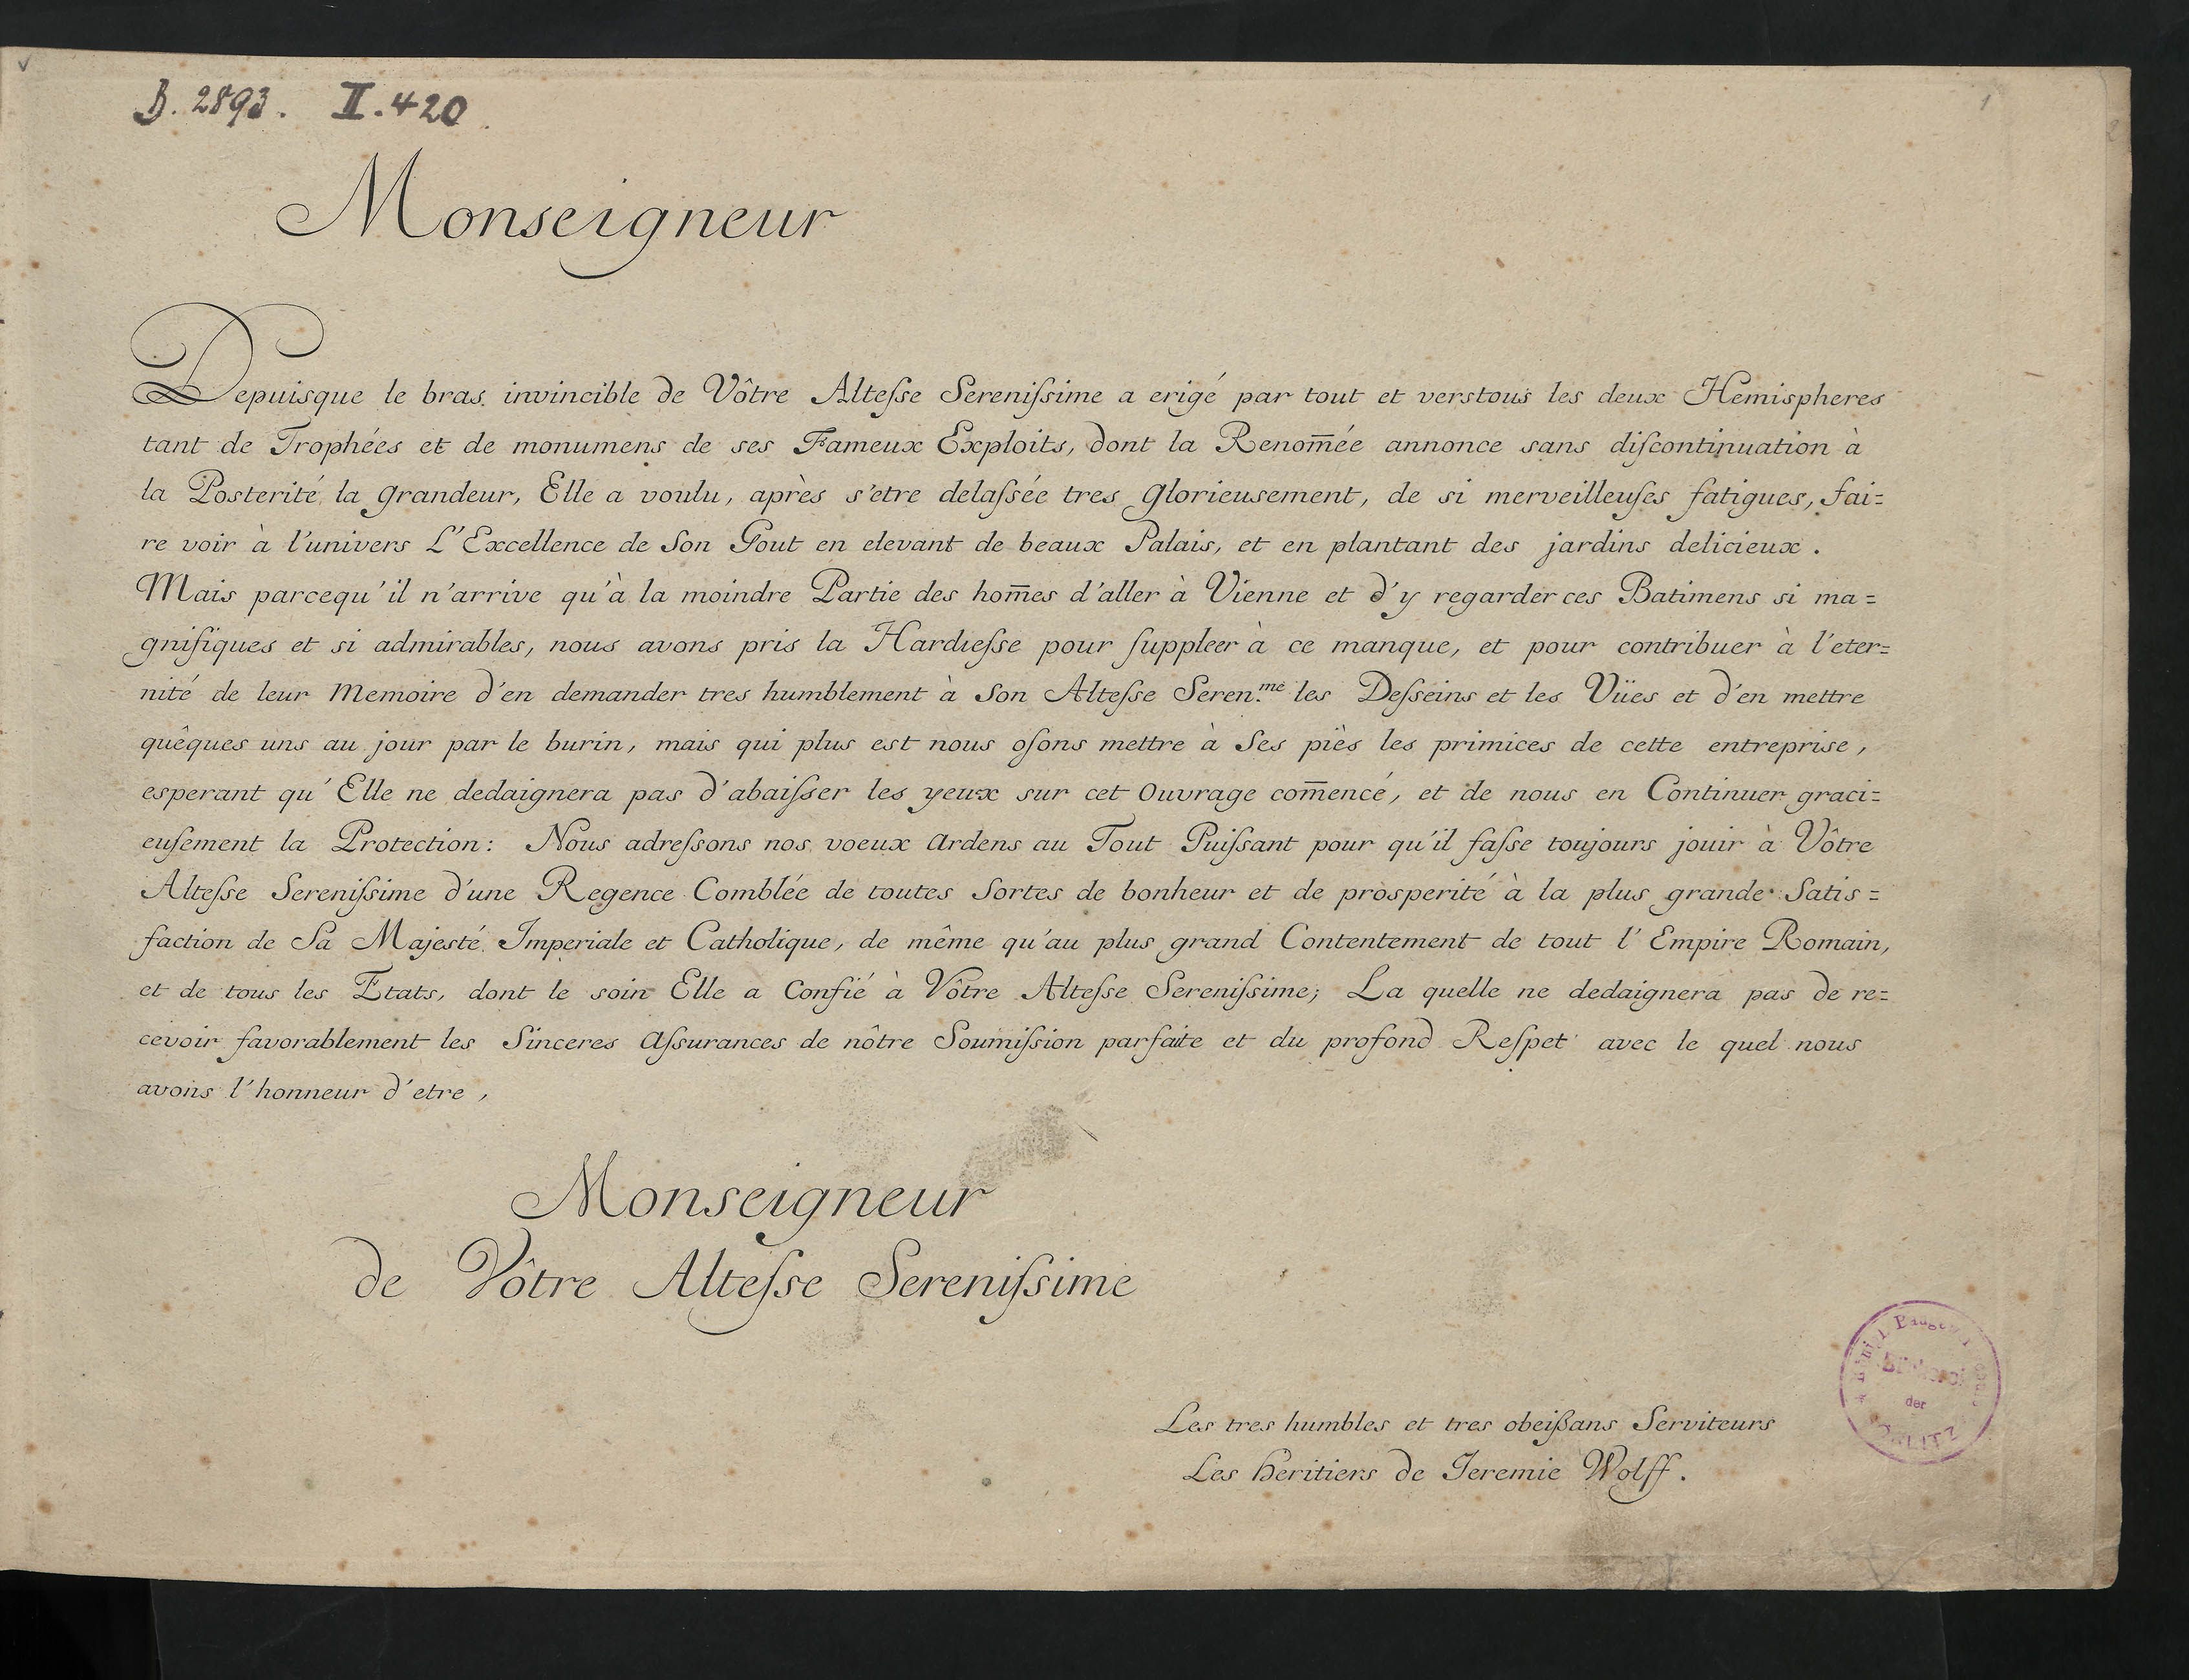 B. 2893. II. 420.
1
Monseigneur
Depuisque le bras invincible de Vôtre Alteſse Sereniſsime a erigé par tout et verstous les deux Hemispheres
tant de Trophées et de monumens de ses Fameux Exploits, dont la Renom̄ée annonce sans diſcontinuation à
la Posterité la grandeur, Elle a voulu, après s'etre delaſsée tres glorieusement, de si merveilleuſes fatigues, fai=
re voir à l'univers L'Excellence de Son Gout en elevant de beaux Palais, et en plantant des jardins delicieux.
Mais parcequ'il n'arrive qu'à la moindre Partie des hom̄es d'aller à Vienne et d'y regarder ces Batimens si ma=
gnifiques et si admirables, nous avons pris la Hardieſse pour ſuppleer à ce manque, et pour contribuer à l'eter=
nité de leur Memoire d'en demander tres humblement à Son Alteſse Seren.me les Deſseins et les Vües et d'en mettre
quêques uns au jour par le burin, mais qui plus est nous oſons mettre à Ses piès les primices de cette entreprise,
esperant qu'Elle ne dedaignera pas d'abaiſser les yeux sur cet Ouvrage com̄encé, et de nous en Continuer graci=
euſement la Protection: Nous adreſsons nos voeux Ardens au Tout Puiſsant pour qu'il faſse toujours jouir à Vôtre
Alteſse Sereniſsime d'une Regence Comblée de toutes Sortes de bonheur et de prosperité à la plus grande Satis=
faction de Sa Majesté Imperiale et Catholique, de même qu'au plus grand Contentement de tout l'Empire Romain,
et de tous les Etats, dont le soin Elle a Confié à Vôtre Alteſse Sereniſsime; La quelle ne dedaignera pas de re=
cevoir favorablement les Sinceres Aſsurances de nôtre Soumiſsion parfaite et du profond Reſpet avec le quel nous
avons l'honneur d'etre,
Monseigneur
de Vôtre Alteſse Sereniſsime
Les tres humbles et tres obeißans Serviteurs
Les Heritiers de Jeremie Wolff.
der